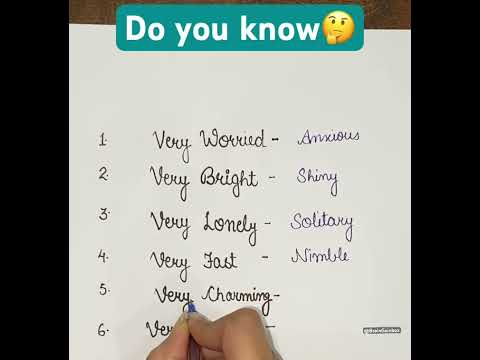 Do you know🤔
1. Very Worried - Anxious
2. Very Bright - Shiny
3. Very Lonely - Solitary
4. Very Fast - Nimble
5. Very Charming -
6. Very -